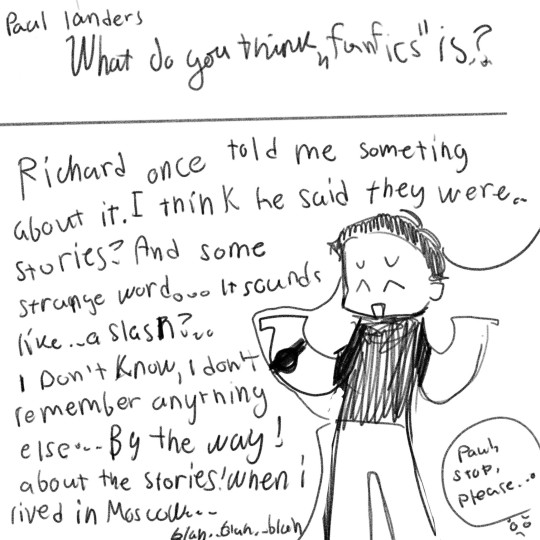 Paul landers
What do you think „fanfics" is?
Richard once told me someting
about it. I think he said they were..
stories? And some
strange word... It sounds
like...a slash?...
I Don't know, I don't
remember anything
else... By the way!
about the stories! when i
lived in Moscow...
blah..blah..blah
Paul,
stop,
please...